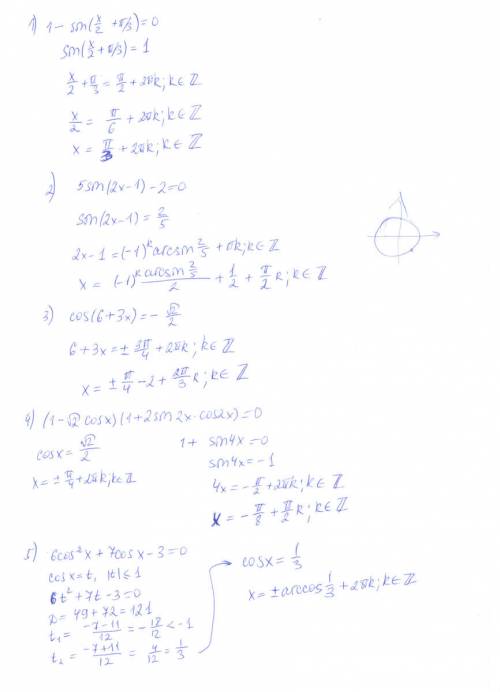 1) 1 - sin(x/2 + π/3) = 0
sin(x/2 + π/3) = 1
x/2 + π/3 = π/2 + 2πk; k ∈ ℤ
x/2 = π/6 + 2πk; k ∈ ℤ
x = π/3 + 2πk; k ∈ ℤ
2) 5sin(2x-1) - 2 = 0
sin(2x-1) = 2/5
2x - 1 = (-1)^k arcsin 2/5 + πk; k ∈ ℤ
x = (-1)^k arcsin 2/5 / 2 + 1/2 + π/2 k; k ∈ ℤ
3) cos(6+3x) = - √2/2
6 + 3x = ± 3π/4 + 2πk; k ∈ ℤ
x = ± π/4 - 2 + 2π/3 k; k ∈ ℤ
4) (1 - √2 cosx)(1 + 2sin 2x · cos2x) = 0
cosx = √2/2
x = ± π/4 + 2πk; k ∈ ℤ
1 + sin4x = 0
sin4x = -1
4x = - π/2 + 2πk; k ∈ ℤ
x = - π/8 + π/2 k; k ∈ ℤ
5) 6cos²x + 7cosx - 3 = 0
cosx = t, |t| ≤ 1
6t² + 7t - 3 = 0
D = 49 + 72 = 121
t₁ = -7-11/12 = - 18/12 < -1
t₂ = -7+11/12 = 4/12 = 1/3
cosx = 1/3
x = ± arccos 1/3 + 2πk; k ∈ ℤ